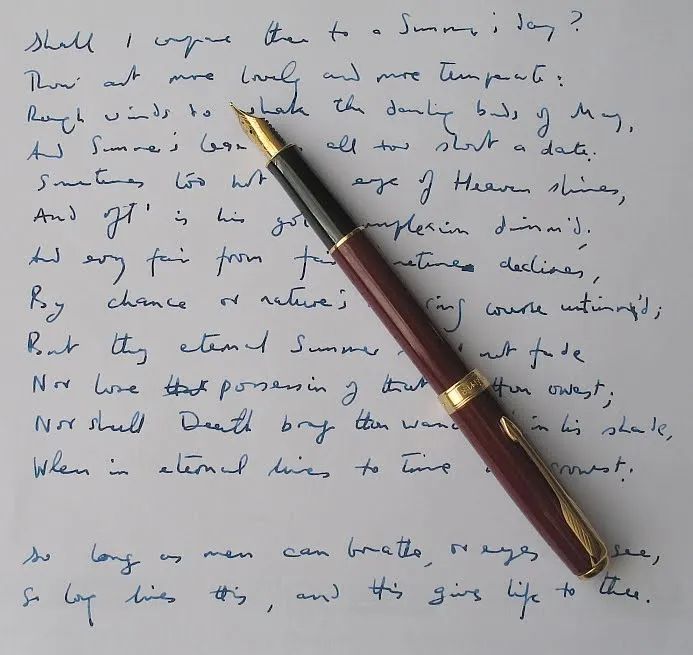 Shall I compare thee to a Summer's day?
Thou art more lovely and more temperate:
Rough winds do shake the darling buds of May,
And Summer's leas all too short a date.
Sometimes too hot eye of Heaven shines,
And oft' is his go complexion dimm'd;
And every fair from fa declines,
By chance or nature's ing course untrimm'd;
But thy eternal Summer not fade
Nor lose possession of that thou owest;
Nor shall Death brag thou wand in his shade,
When in eternal lines to time growest:
So long as men can breathe, or eyes see,
So long lives this, and this gives life to thee.